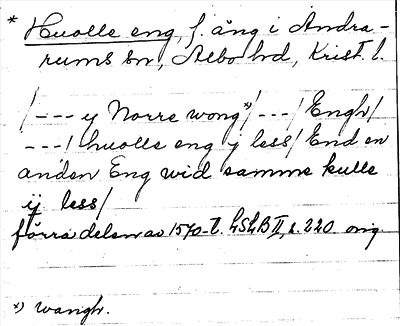 * Huolle eng, f. äng i Andra-
rums sn, Albo hd, Krist. l.
/--- y Norre wong*)/---/Engh/
---/huolle eng y less/End en
anden Eng wid samme kulle
ij less/
förra delen av 1570-t. LSLB II, s. 220 orig.
*) wangh.